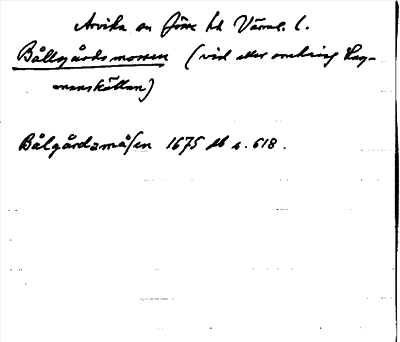 Arvika sn Jösse hd Värml. l.
Bållgårdsmossen (vid eller omkring Hag-
manskällan)
Bålgårdzmåſen 1675 db s. 618.